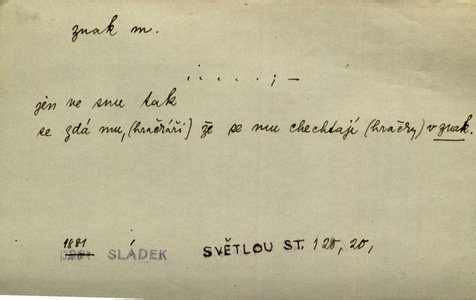 znak m.
. . . . . ; –
jen ve snu tak
se zdá mu, (hračkáři) že se mu chechtají (hračky) v znak.
1881 SLÁDEK SVĚTLOU ST. 120, 20,